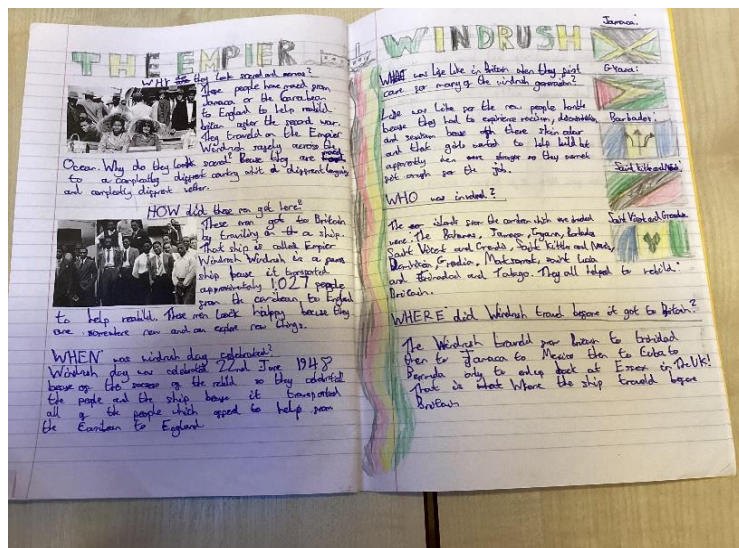 THE EMPIER
WHY are they look scared and nervos?
These people have moved from
Jamaca or the Carrabean
to England to help rebuild
britan after the second war.
They traveld on the Empier
Windrush safely across the
Ocean. Why do they look scared? Beause they are
to a completly diffrent contry with a different language
and completly diffrent
HOW did these men get here?
These men got to Britain
by travling on the a ship.
That ship is called Empier
Windrush. Windrush is a
ship beause it transported
approximately 1,027 people
from the caribean to England
to help rebuild. These men look happy because they
are somewhere new and can explore new things.
WHEN was windrush day celebrated?
Windrush day was celebrated 22nd June 1948
beause of the success of the rebild so they celebrated
the people and the ship beause it transported
all of the people which offerd to help from
the Caribean to England
WINDRUSH
WHAT was life like in Britain when they first
came for many of the windrush generation?
Life was like for the new people horible
beause they had to experience racisim,
and beause of there skin color
and that girls wanted to help build but
apparently men were stronger so they wernt
fit enough for the job.
WHO was involved?
The islands from the caribean which are involved
were: The Bahamas, Jamaca, Barbados
Saint and Saint Kittle and Nevis,
Grenadia, Montsarat, saint lucia
and Trinidad and Tobago. They all helped to rebild
Britain.
WHERE did Windrush travel before it got to Britain?
The Windrush traveld from Britain to trinidad
then to Jamaca to Mexico then to Cuba to
Bermuda only to end up back at Essex in The UK!
That is what Where the ship traveld before
Britain
Jamaica:
Guana:
Barbados:
Saint Kitts and Nevis:
Saint Vincent and Grenadine